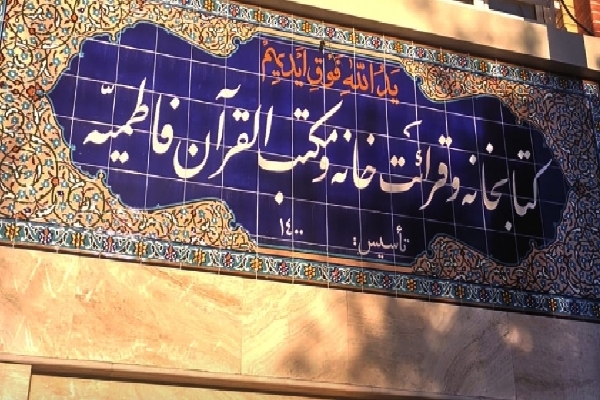 یَدُ اللهِ فَوْقَ اَیْدیهِمْ
کتابخانه و قرائت خانه و مکتب القرآن فاطمیّه
تأسیس: ۱۴۰۰